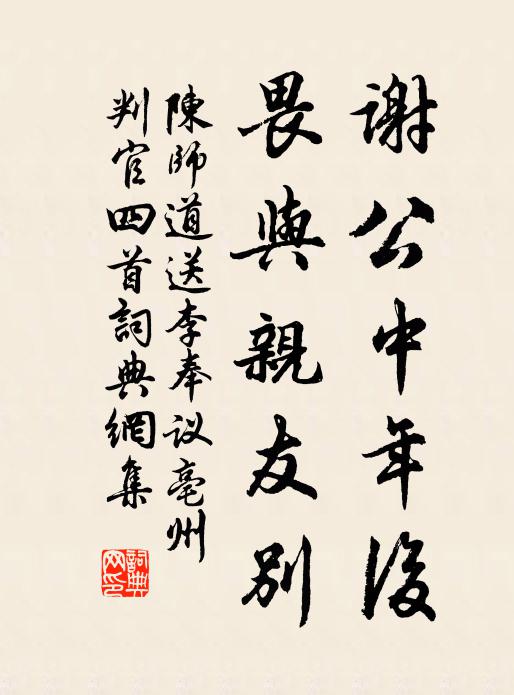 謝公中年後
畏與親友別
陳師道送李奉议亳州
判官四首詞典網集
詞典網印